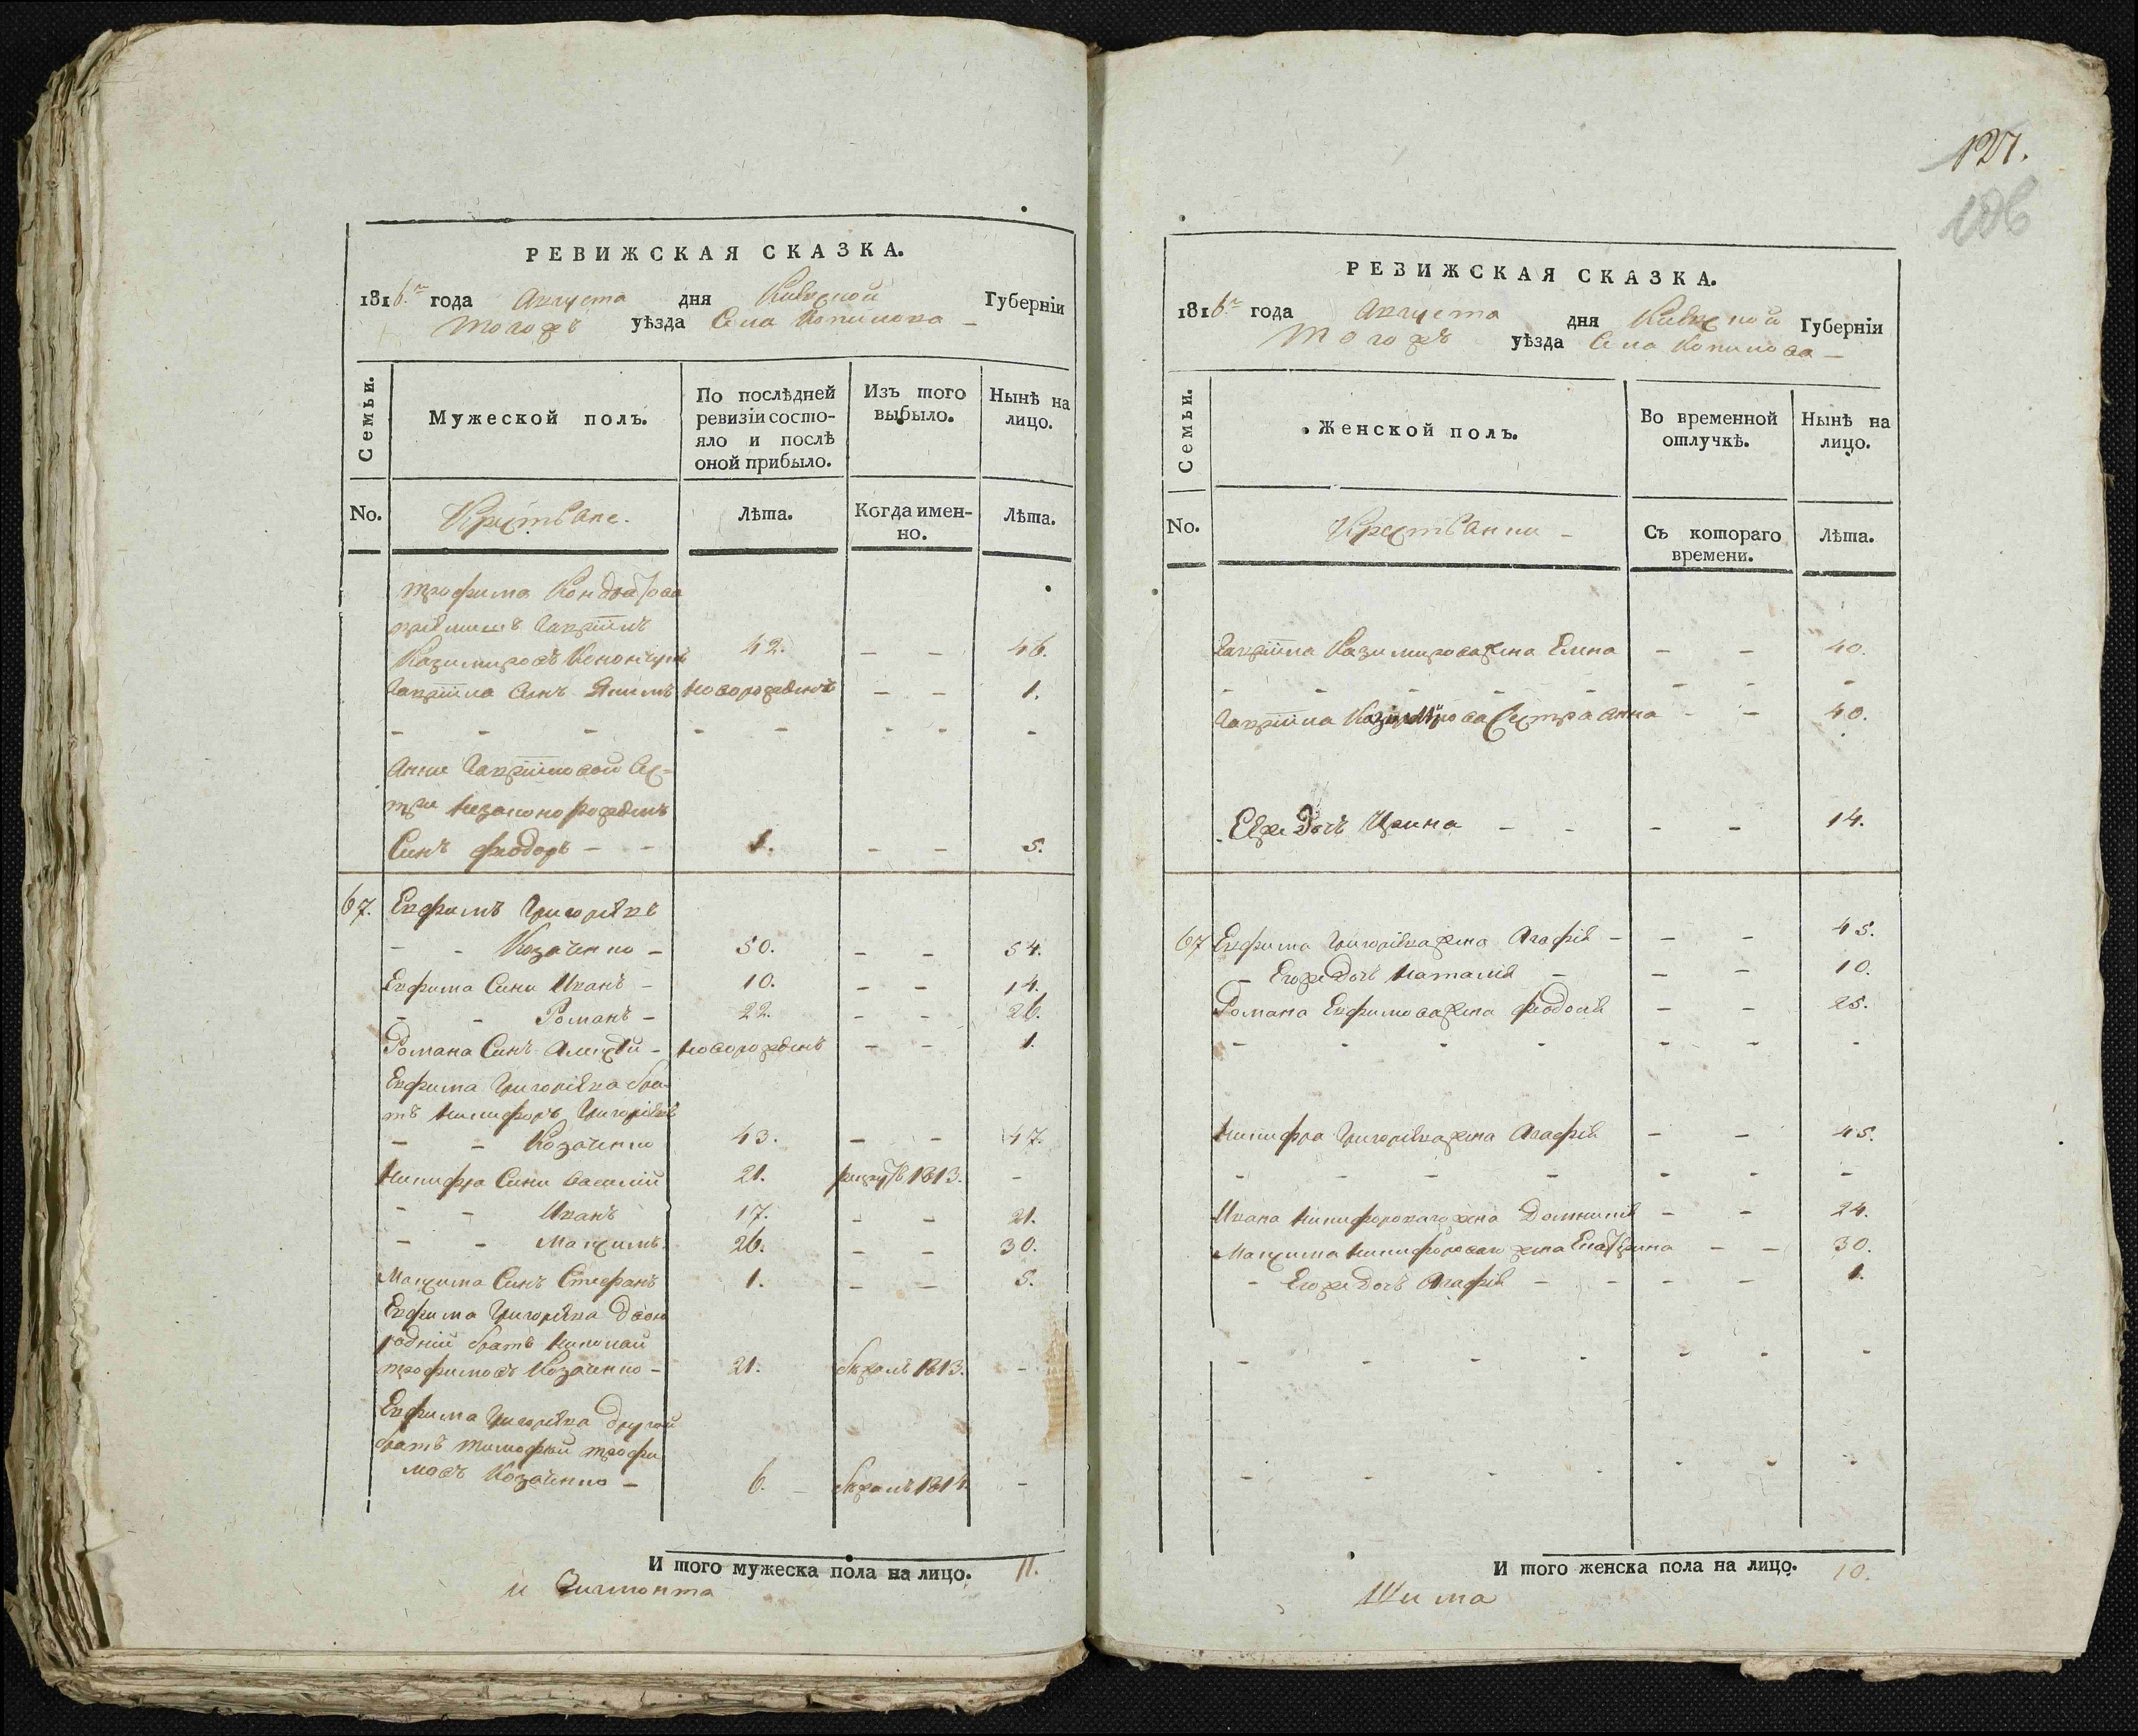 РЕВИЖСКАЯ СКАЗКА.
1816го года Августа дня Киевской Губерніи
Тогожъ уѣзда Села Копилова
Семьи.
Мужеской полъ.
По послѣдней ревизіи состо-
яло и послѣ
оной прибыло.
Изъ того выбыло.
Нынѣ на лицо.
No.
Крестьяне.
Лѣта.
Когда имен-
но.
Лѣта.
Трофима Кондратова
Гаврiилъ
Казимировъ 42. - - 46.
Гаврiила Синъ Якимъ новорожденъ - - 1.
Анни Гавриловой Сес-
тры незаконорожденъ
Синъ Феодоръ - - 1. - - 5.
67. Евфимъ Григорьевъ
- - Козаченко - 50. - - 54.
Евфима Сини Иванъ - 10. - - 14.
- - Романъ - 22. - - 26.
Романа Синъ Алексѣй - новорожденъ - - 1.
Евфима Григорьева бра-
тъ Никифоръ Григорьевъ
- - Козаченко 43. - - 47.
Никифра Сини Василий 21. рекрут 1813. -
- - Иванъ 17. - - 21.
- - Максимъ 26. - - 30.
Максима Синъ Стефанъ 1. - - 5.
Евфима Григорьева двою
родній братъ Николай
Трофимовъ Козаченко - 21. бѣжалъ 1813. -
Евфима Григорьева другой
братъ Тимофей Трофи
мовъ Козаченко - 6. - бѣжалъ 1814. -
И того мужеска пола на лицо. 11.
127.
РЕВИЖСКАЯ СКАЗКА.
1816го года Августа дня Киевской Губерніи
Тогожъ уѣзда Села Копилова
Семьи.
Женской полъ.
Во временной
отлучкѣ.
Нынѣ на
лицо.
No.
Крестьянки -
Съ котораго
времени.
Лѣта.
Гаврiила Казимирова жена Елена - - 40.
Гаврiила Казимирова Сестра Анна - - 40.
Ея же дочъ Ирина - - - - 14.
67 Евфима Григорьева жена Агафія - - - 45.
- Его же дочъ Наталія - - - 10.
Романа Евфимова жена Феодосія - - 25.
Никифра Григорьева жена Агафія - - 45.
Ивана Никифорова жена Домникія - - 24.
Максима Никифорова жена Екатерина - - 30.
- Его же дочъ Агафія - - - - 1.
И того женска пола на лицо. 10.